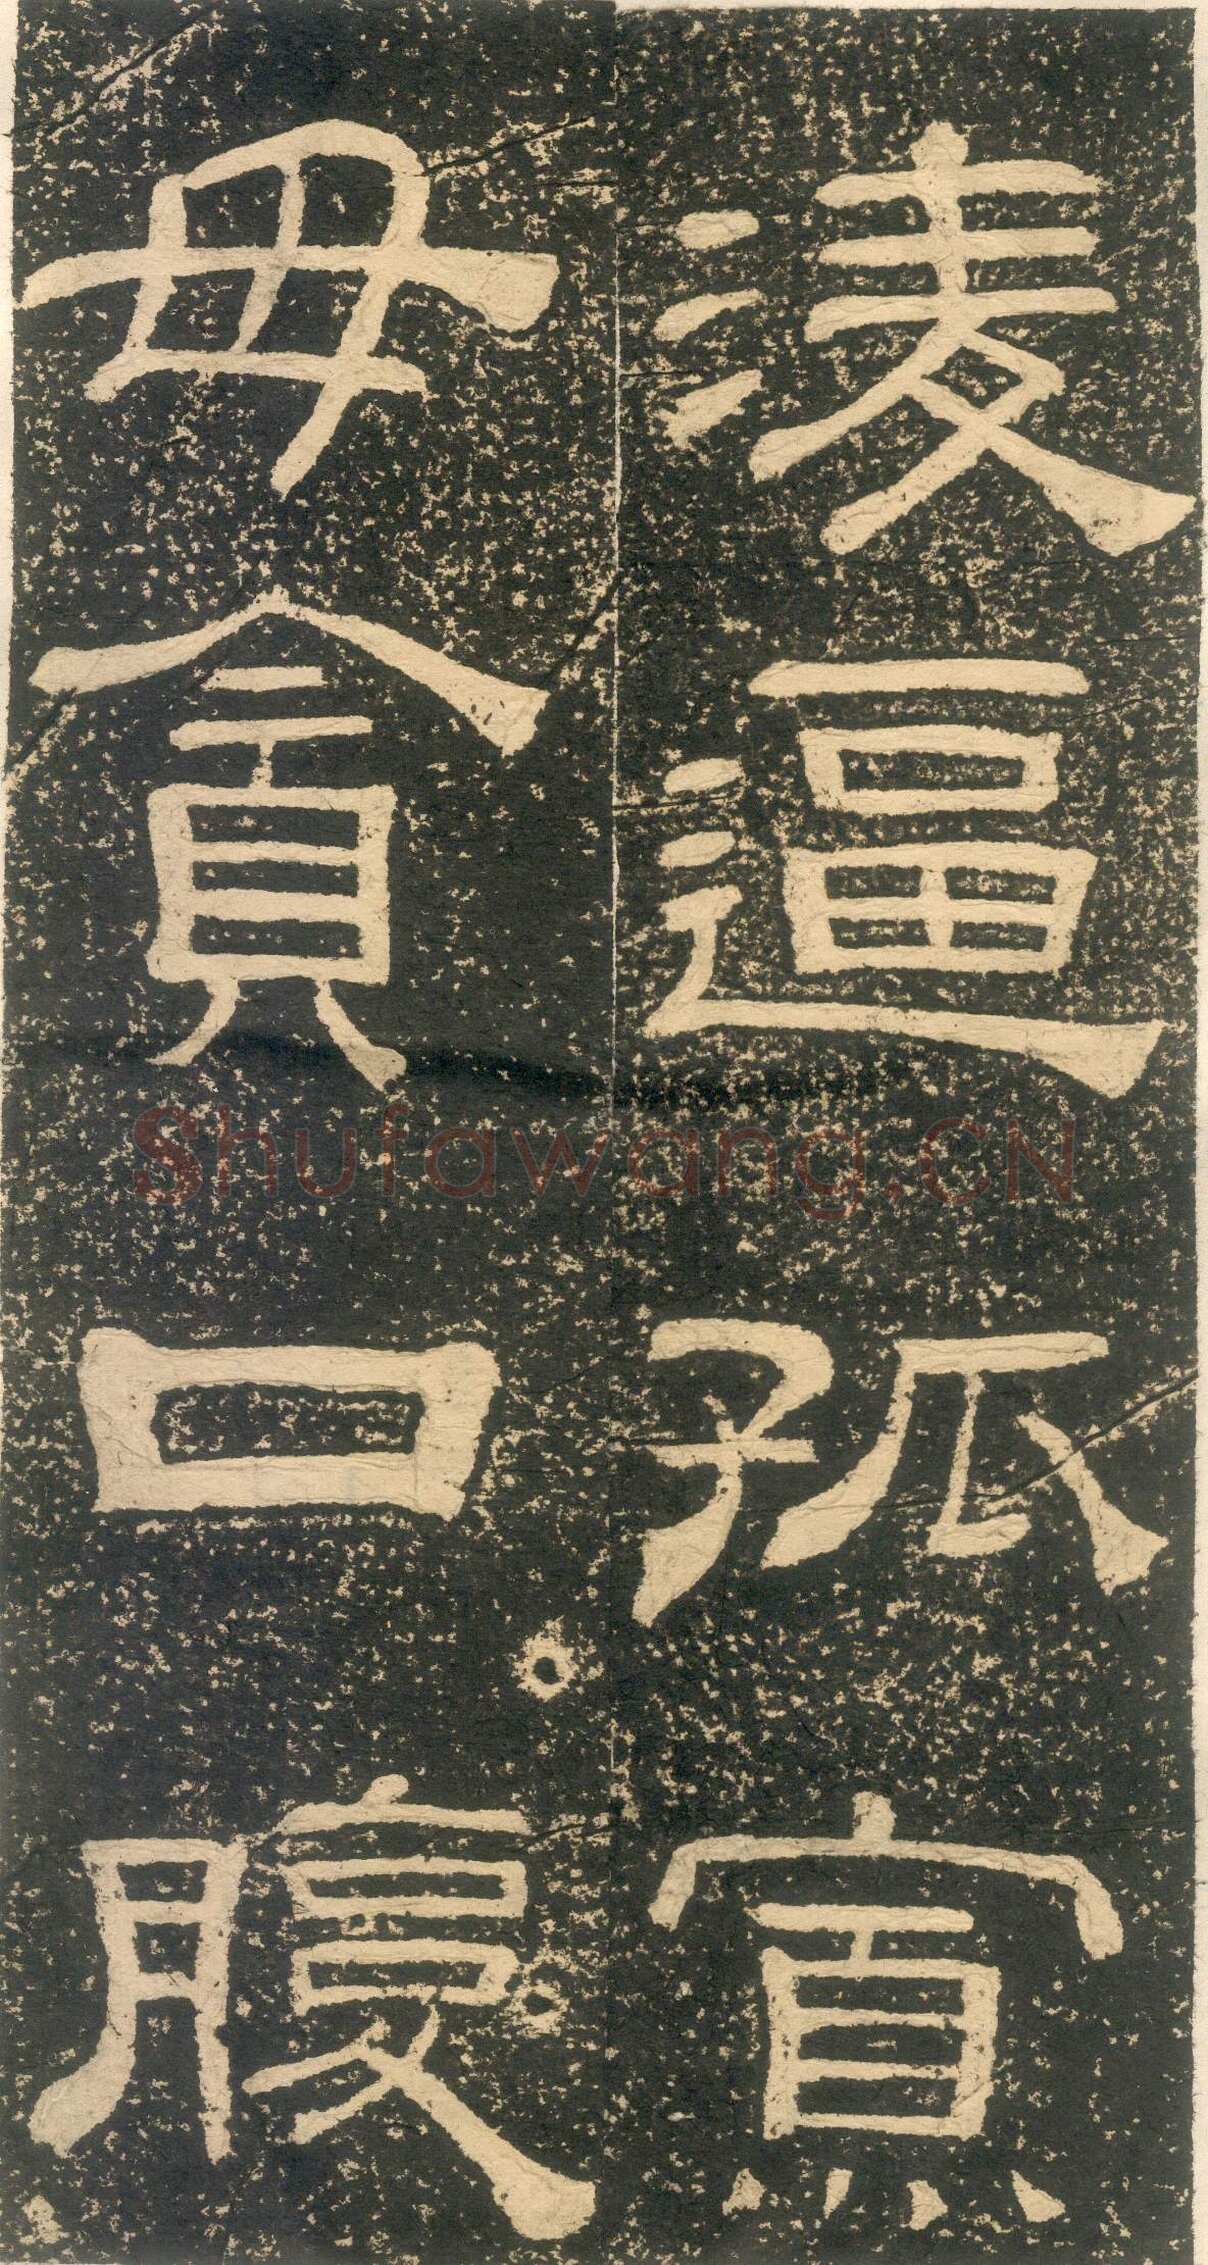 淩逼孤寡
毋貪口腹
Shufawang.CN